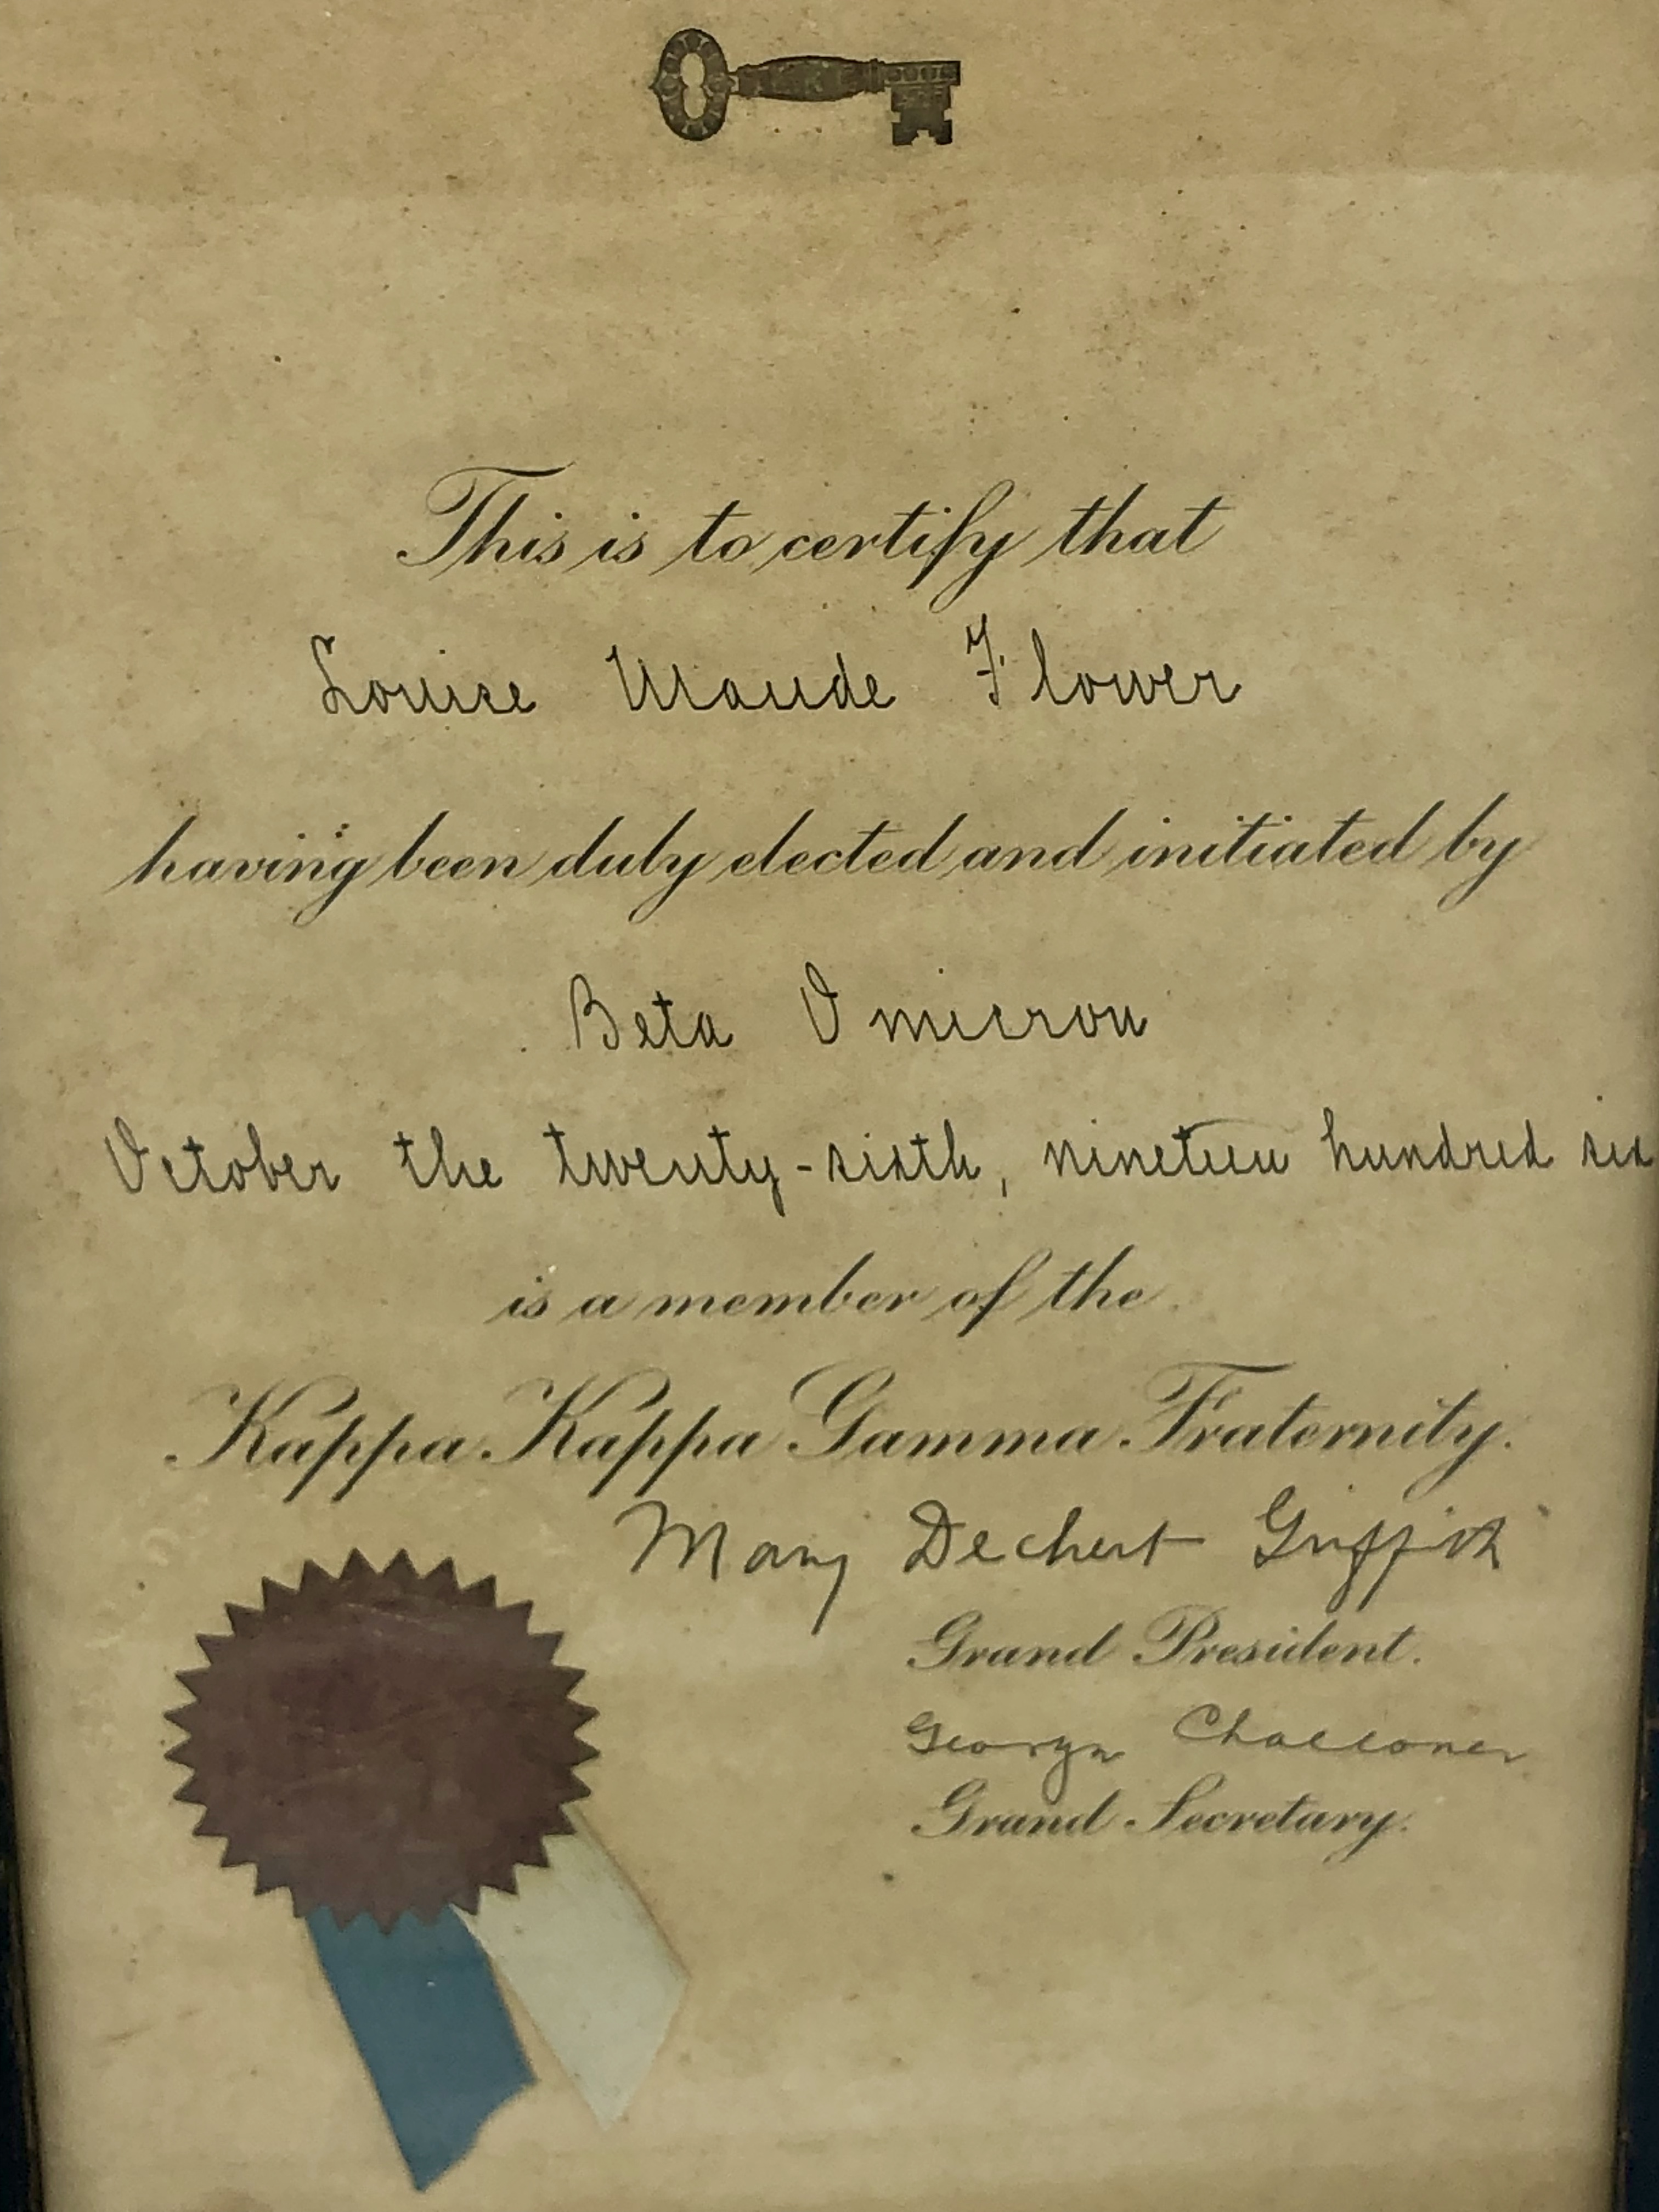 This is to certify that
Louise Maude Flower
having been duly elected and initiated by
Beta Omicron
October the twenty-sixth, nineteen hundred six
is a member of the
Kappa Kappa Gamma Fraternity.
Mary Dechert Griffith
Grand President.
George Challoner
Grand Secretary.